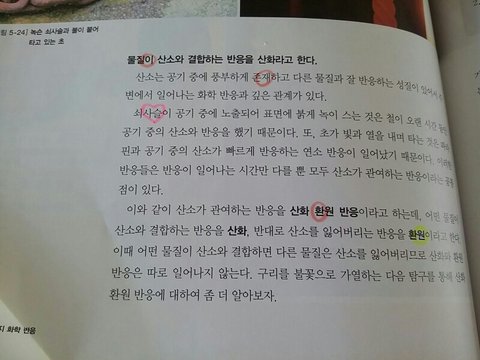 림 5-24] 녹슨 쇠사슬과 불이 붙어
타고 있는 초
물질이 산소와 결합하는 반응을 산화라고 한다.
산소는 공기 중에 풍부하게 존재하고 다른 물질과 잘 반응하는 성질이 있어서
변에서 일어나는 화학 반응과 깊은 관계가 있다.
쇠사슬이 공기 중에 노출되어 표면에 붉게 녹이 스는 것은 철이 오랜 시간
공기 중의 산소와 반응을 했기 때문이다. 또, 초가 빛과 열을 내며 타는 것은
핀과 공기 중의 산소가 빠르게 반응하는 연소 반응이 일어났기 때문이다. 이러한
반응들은 반응이 일어나는 시간만 다를 뿐 모두 산소가 관여하는 반응이라는 공통
점이 있다.
이와 같이 산소가 관여하는 반응을 산화 환원 반응이라고 하는데, 어떤 물질이
산소와 결합하는 반응을 산화, 반대로 산소를 잃어버리는 반응을 환원이라고 한다.
이때 어떤 물질이 산소와 결합하면 다른 물질은 산소를 잃어버리므로 산화와 환원
반응은 따로 일어나지 않는다. 구리를 불꽃으로 가열하는 다음 탐구를 통해 산화
환원 반응에 대하여 좀 더 알아보자.
지 화학 반응